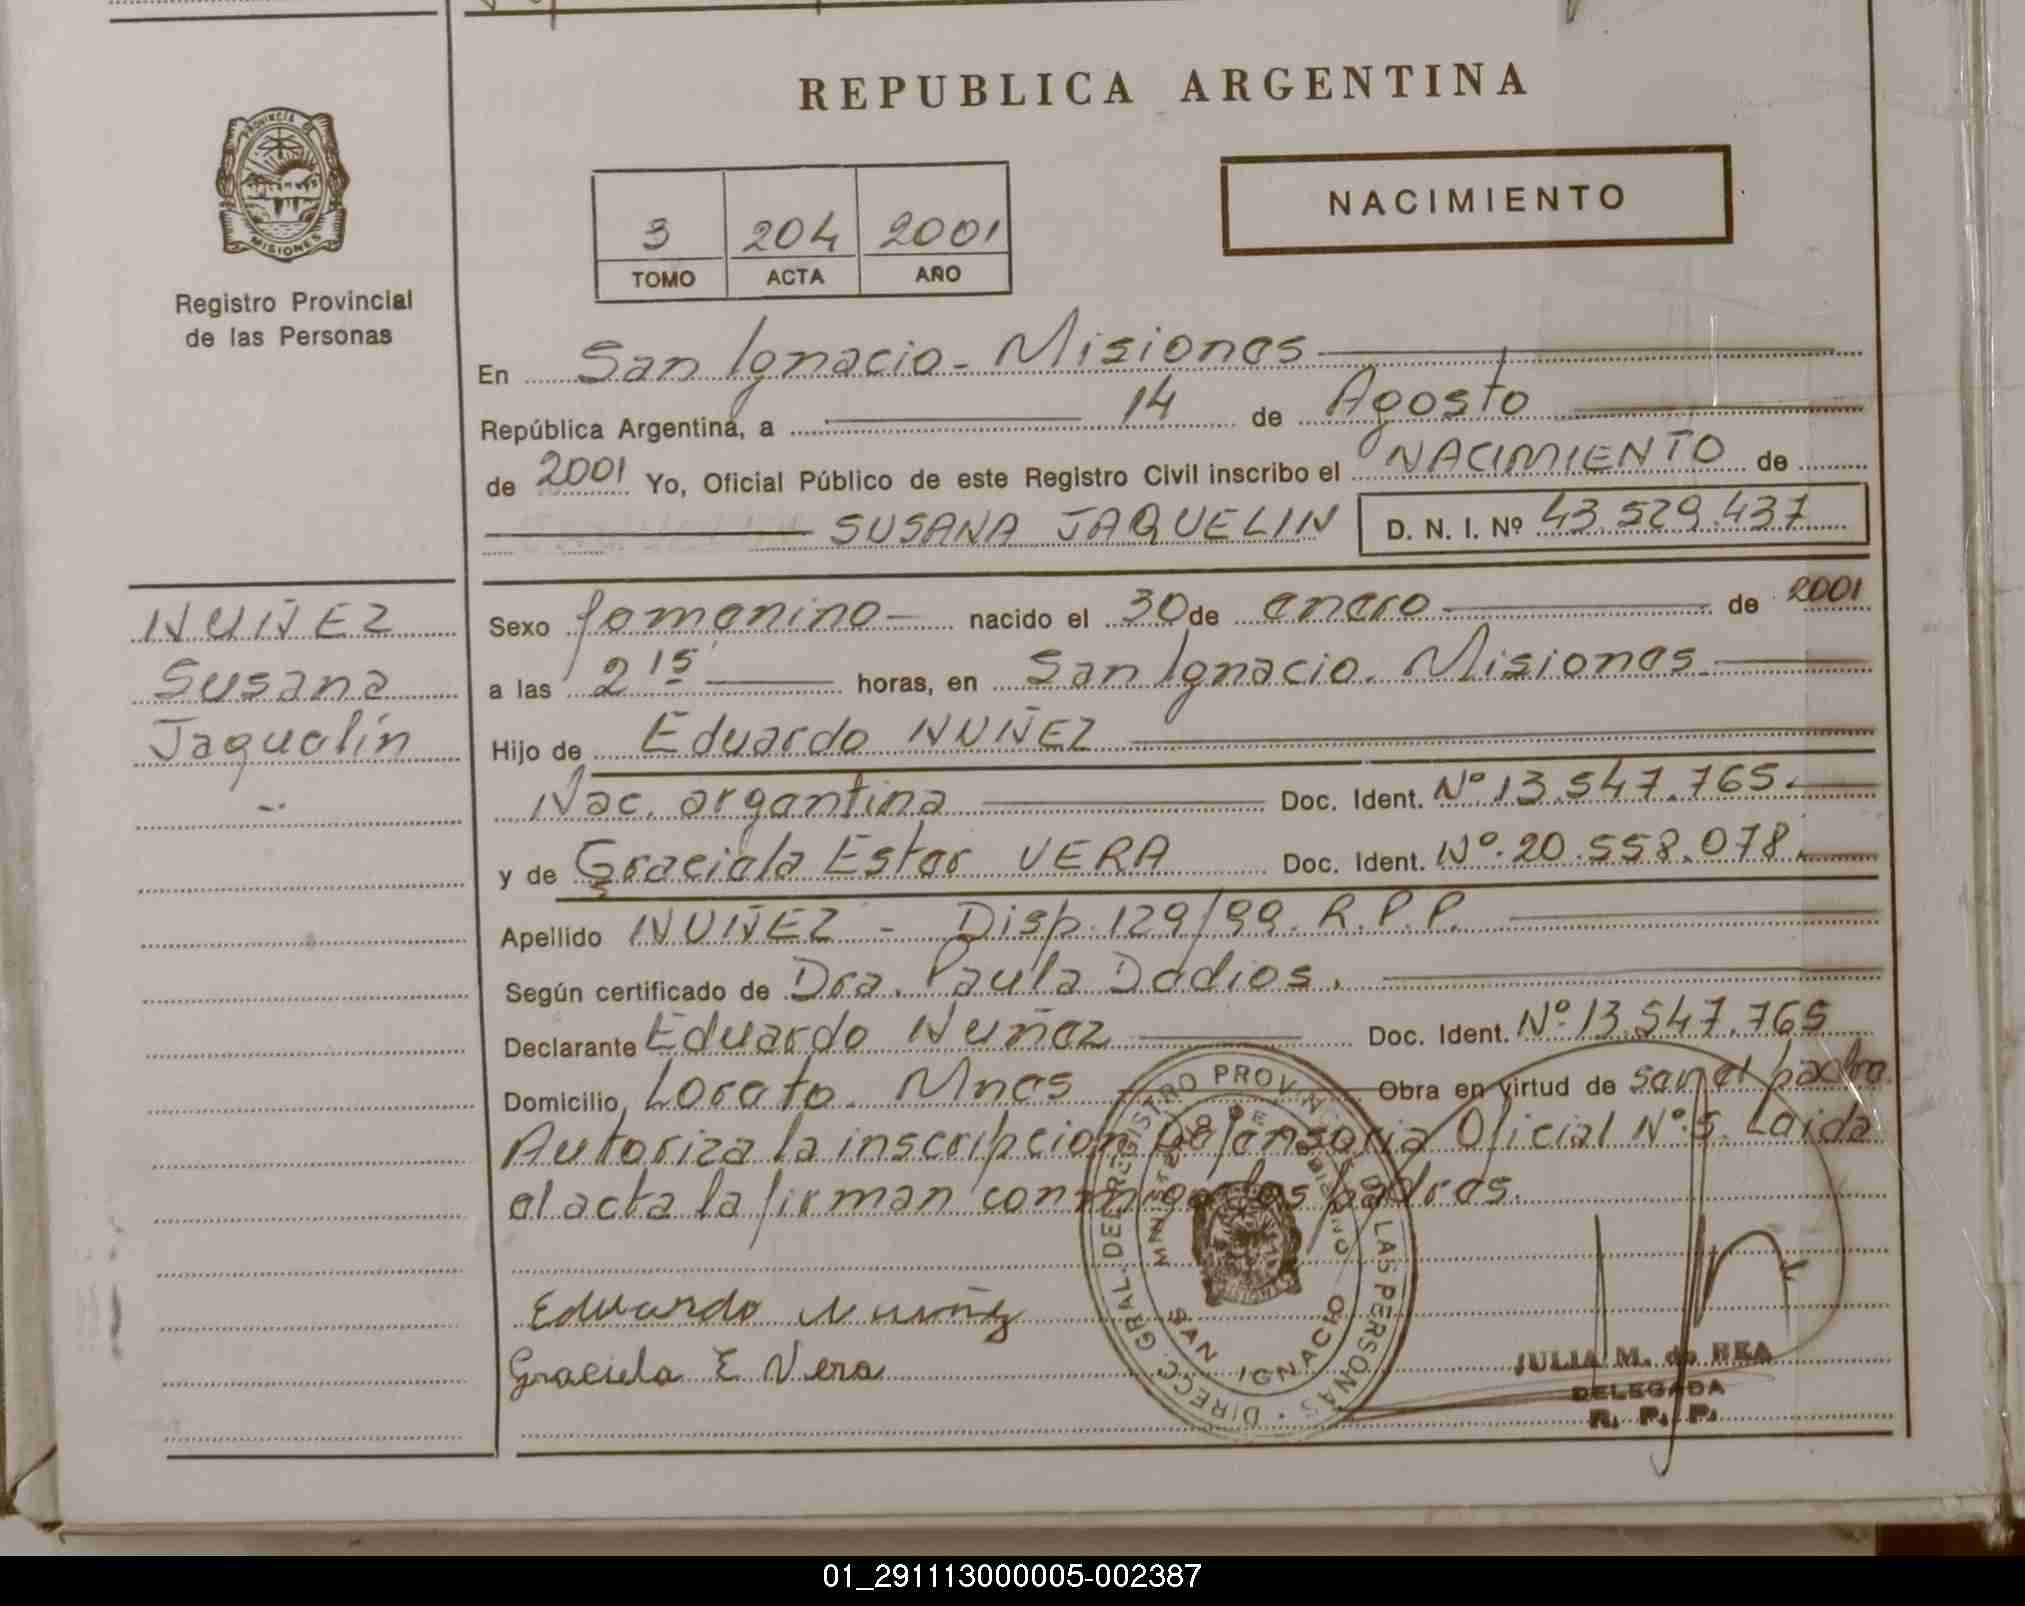 REPUBLICA ARGENTINA
PROVINCIA DE
MISIONES
Registro Provincial
de las Personas
NACIMIENTO
3 204 2001
TOMO ACTA AÑO
En San Ignacio - Misiones
República Argentina, a 14 de Agosto
de 2001 Yo, Oficial Público de este Registro Civil inscribo el NACIMIENTO de
SUSANA JAQUELIN D. N. I. Nº 43.529.437
NUÑEZ
Susana
Jaquelin
Sexo femenino nacido el 30 de enero de 2001
a las 2 15 horas, en San Ignacio. Misiones
Hijo de Eduardo NUÑEZ
Nac. argentina Doc. Ident. Nº 13.547.765.
y de Graciela Ester VERA Doc. Ident. Nº. 20.558.078.
Apellido NUÑEZ - Disp. 129/99. R.P.P.
Según certificado de Dra. Paula Dedios.
Declarante Eduardo Nuñez Doc. Ident. Nº. 13.547.765
Domicilio Loreto. Mnes Obra en virtud de ser el padre
Autoriza la inscripcion Defensoria Oficial Nº. 5. Leida
el acta la firman conmigo los padres.
Eduardo Nuñez
Graciela E Vera
DIRECC. GRAL. DE REGISTRO PROVINCIAL DE LAS PERSONAS
SAN IGNACIO
JULIA M. de REA
DELEGADA
R. P. P.
01_291113000005-002387